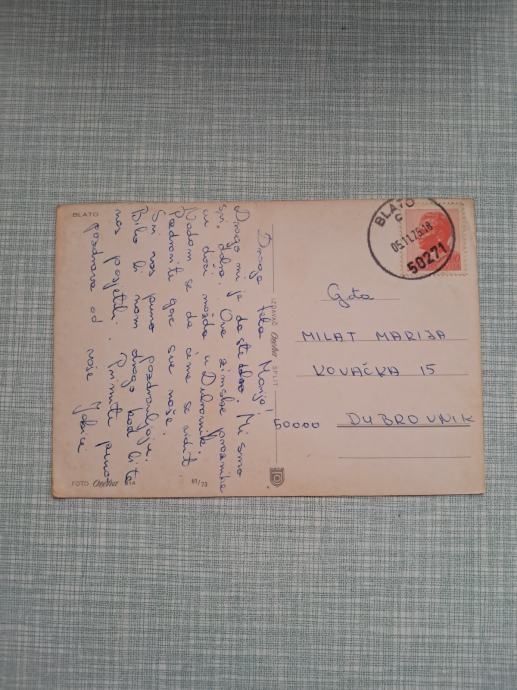 BLATO
Draga teta Marija!
Drago mi je da ste dobro. Mi smo
svi dobro. Ove zimske praznike
ću doći možda u Dubrovnik.
Nadam se da ćemo se vidit
Pozdravite gore sve naše.
Svi vas puno pozdravljaju.
Bilo bi nam drago kad bi te
nas posjetili. Primite puno
pozdrava od vaše
FOTO
61/73
IZDAVAČ SPLIT
BLATO
C
05.11.75.18
50271
Gđa
MILAT MARIJA
KOVAČKA 15
50000 DUBROVNIK